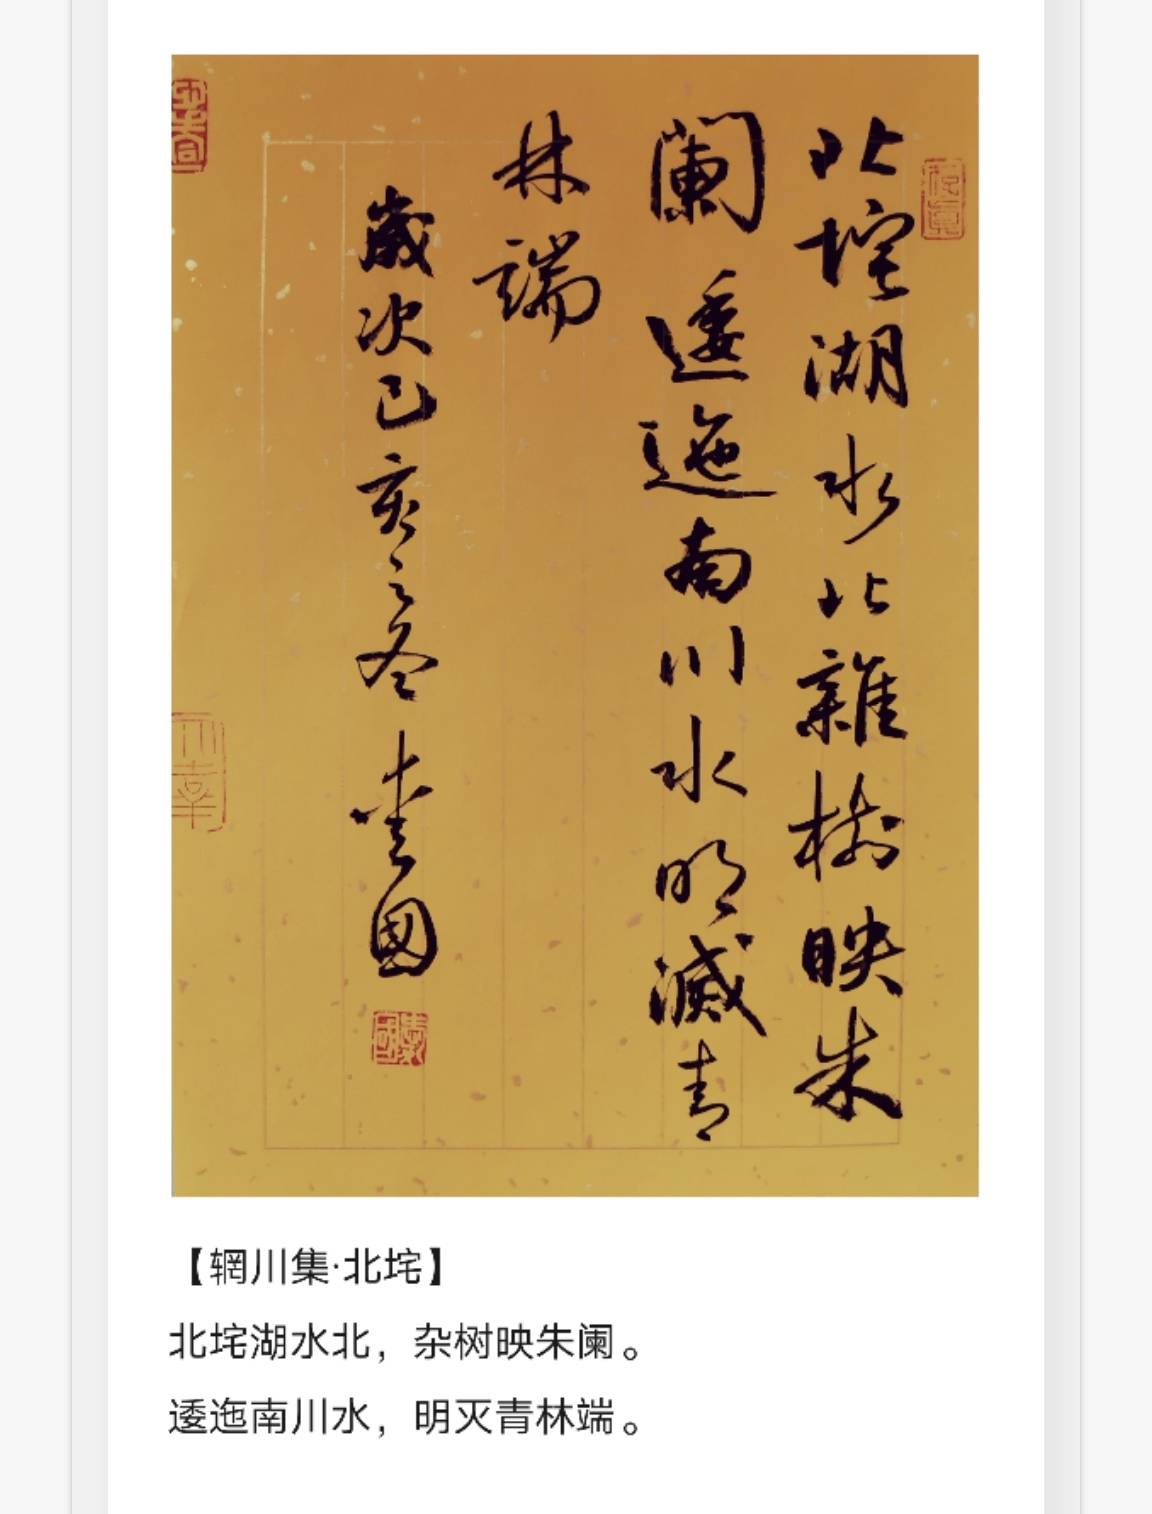 北垞湖水北雜樹映朱
闌逶迤南川水明滅青
林端
歲次己亥之冬
國
【辋川集·北垞】
北垞湖水北，杂树映朱阑。
逶迤南川水，明灭青林端。